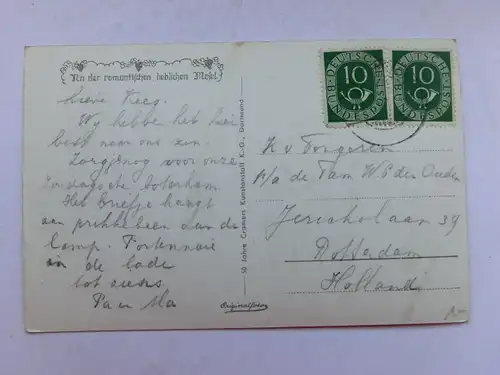 An der romantischen lieblichen Mosel.
Lieve Kees.
Wy hebben het hier
best naar ons zin.
voor onze
boterham.
Het briefje hangt
aan prikkebeen aan de
lamp. Portemonnaie
in de lade
tot ziens
Pa en Ma
50 Jahre Cramers Kunstanstalt K.-G., Dortmund
Originalfoto
DEUTSCHE BUNDESPOST
10
DEUTSCHE BUNDESPOST
10
K v Tongeren
p/a de Fam W G den Ouden
Jericholaan 39
Rotterdam
Holland